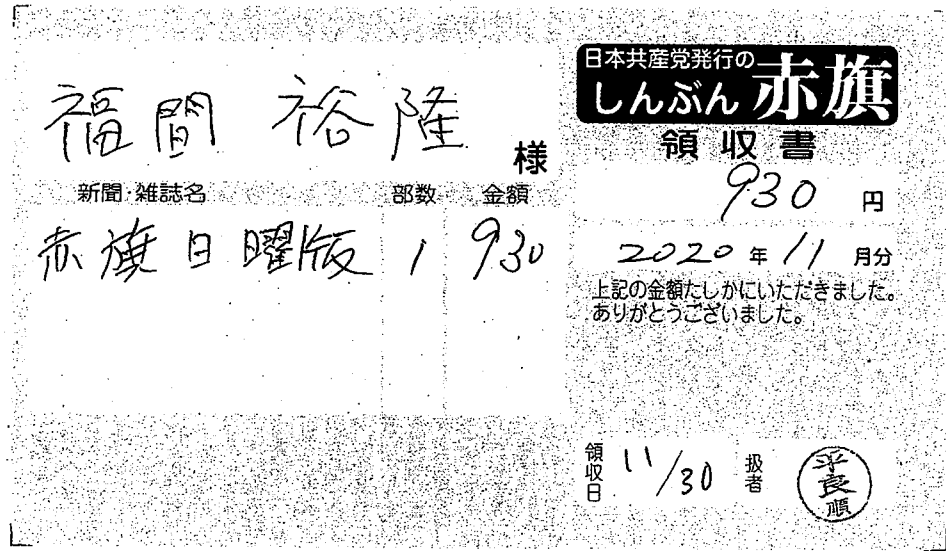 福間 裕隆 様
新聞・雑誌名 部数 金額
赤旗日曜版 1 930
日本共産党発行の
しんぶん赤旗
領収書
930 円
2020年11月分
上記の金額たしかにいただきました。
ありがとうございました。
領収日 11/30 扱者 平良順